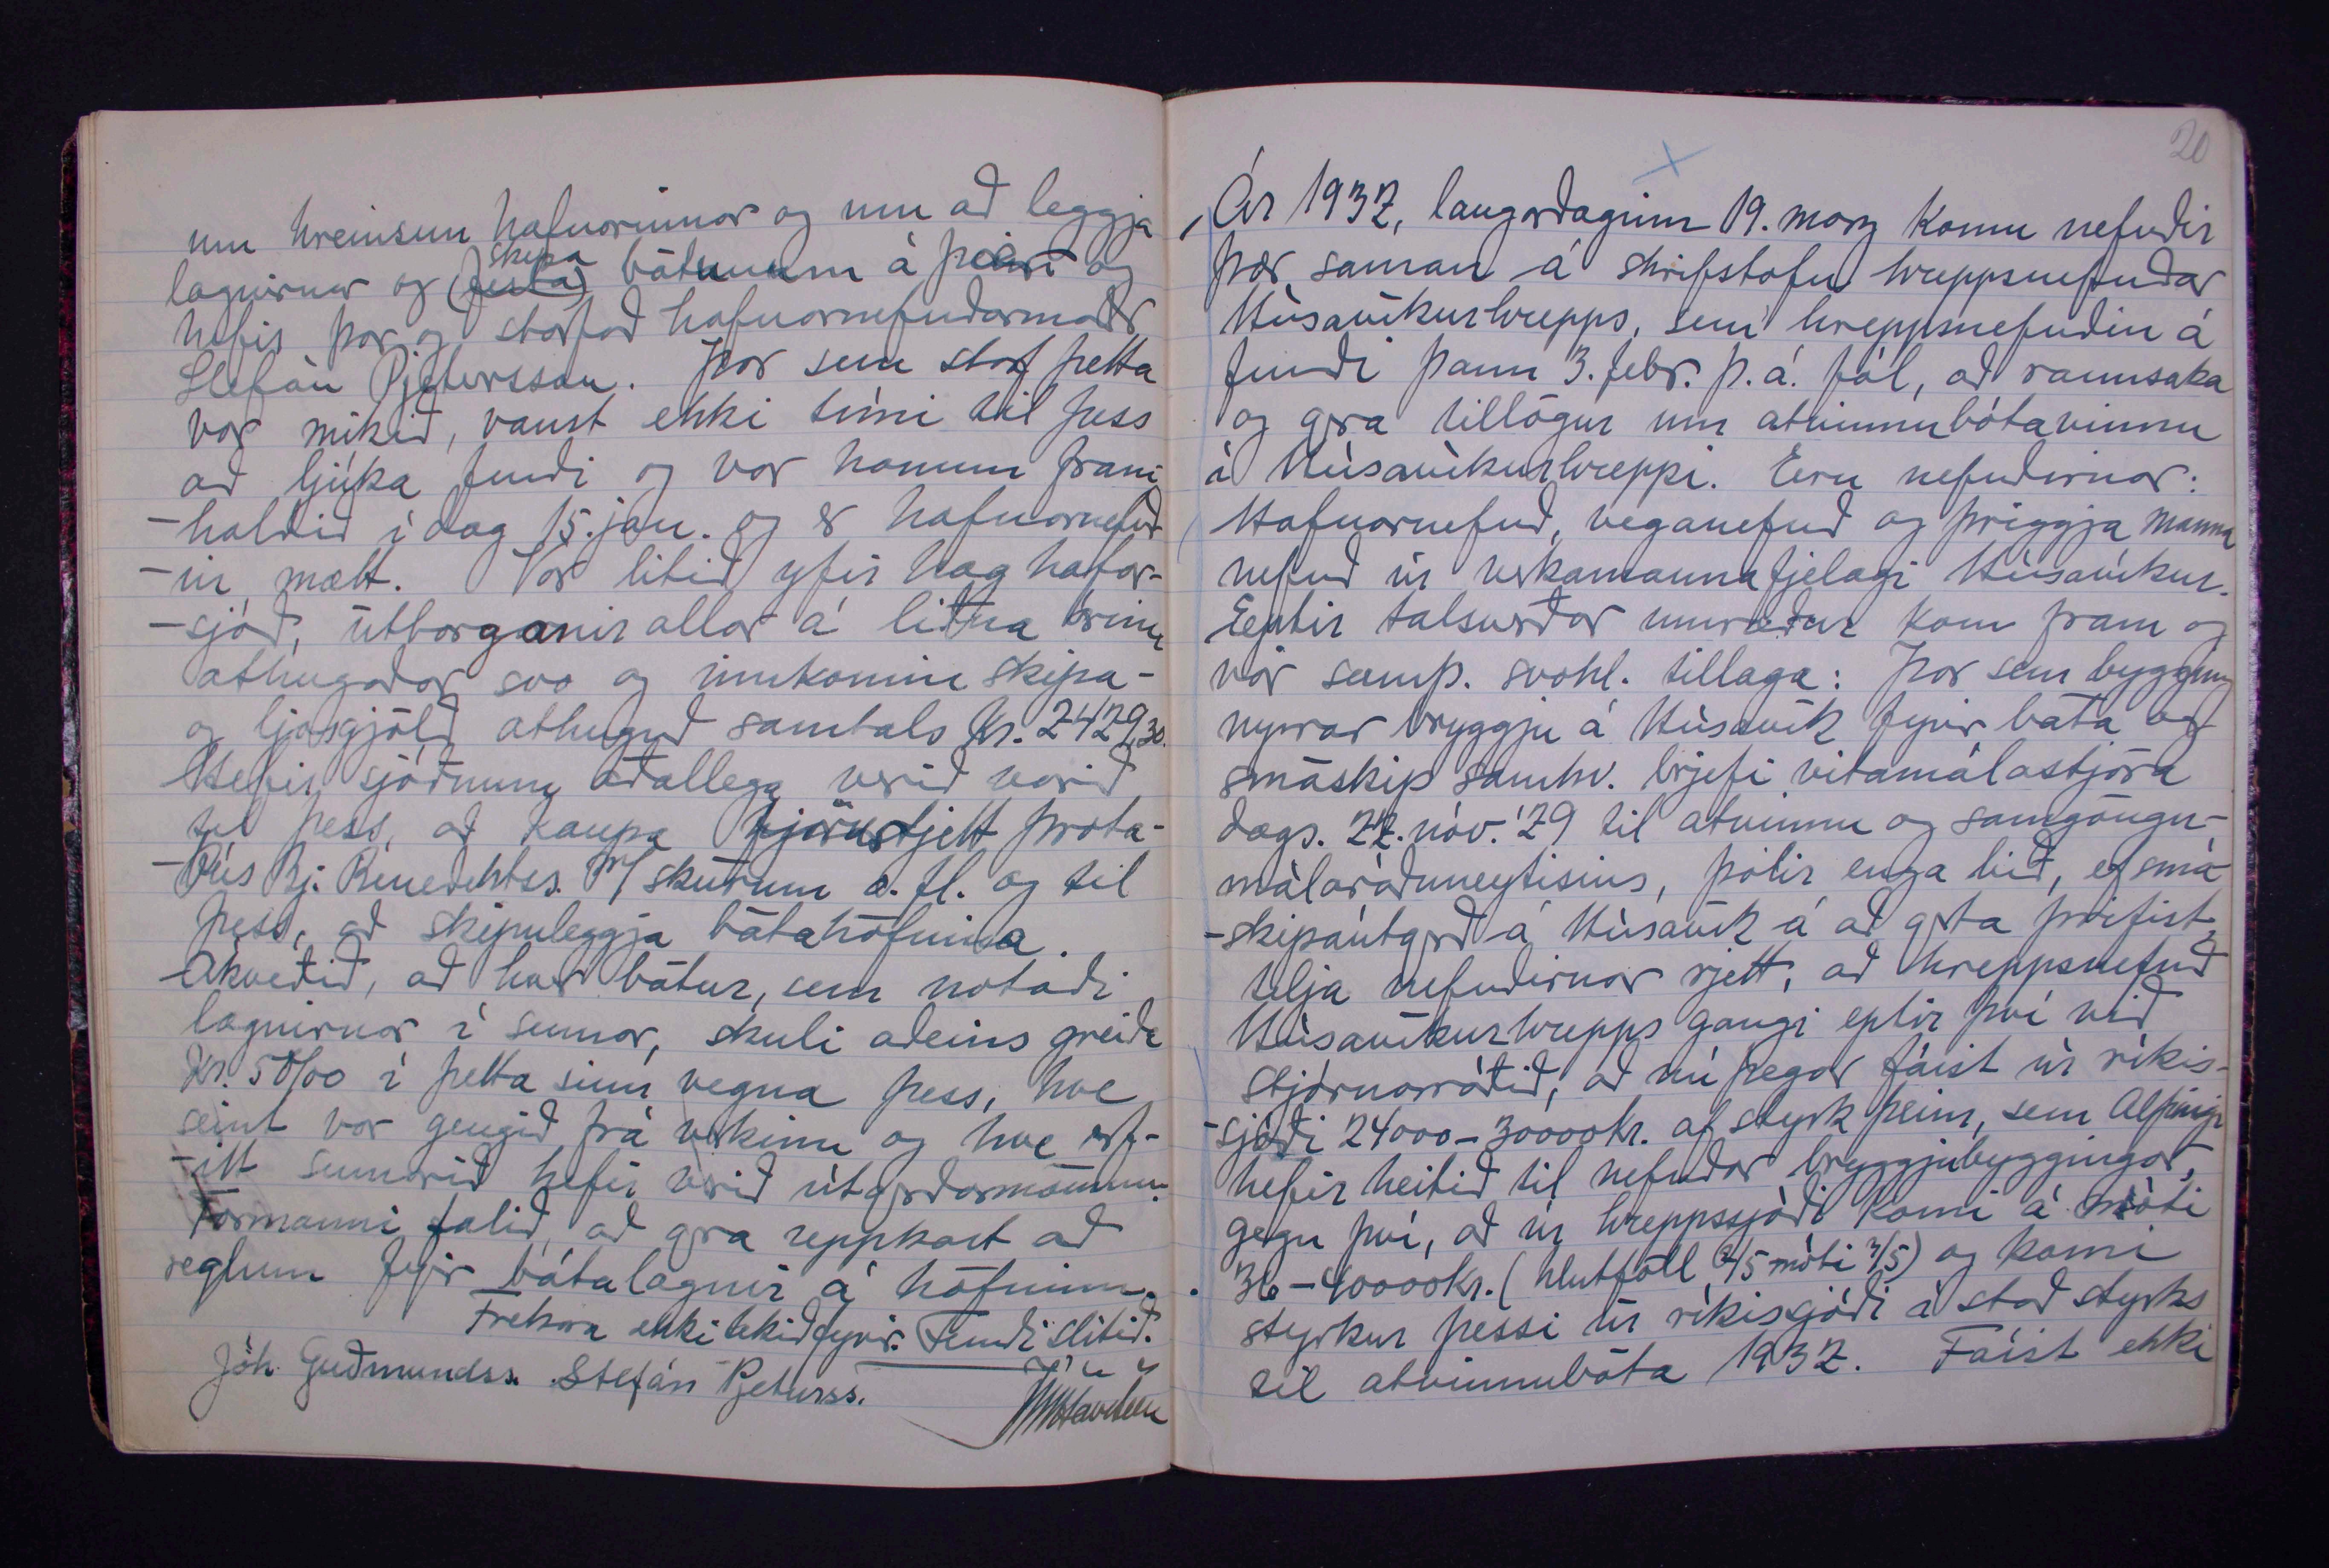 um hreinsun hafnarinnar og um að leggja
lagnirnar og (festa) skipa bátunum á þær og
hefir þar og starfað hafnarnefndarmaðr
Stefán Pjetursson. Þar sem starf þetta
var mikið, vanst ekki tími til þess
að ljúka fundi og var honum fram
-haldið í dag 15. jan. og er hafnarnefnd-
-in mætt. Var litið yfir hag hafnar-
-sjóð, útborganir allar á liðna árinu
athugaðar svo og innkomin skipa-
og ljósgjöld athuguð samtals Kr. 2429,30.
Hefir sjóðnum aðallega verið varið
til þess, að kaupa fjörustjett þrota-
-bús Bj. Benedektss. m/ skúrum o. fl. og til
þess, að skipuleggja bátahöfnina.
Ákveðið, að hver bátur, sem notaði
lagnirnar í sumar, skuli aðeins greiða
Kr. 50/00 í þetta sinn vegna þess, hve
seint var gengið frá verkinu og hve erf-
-itt sumarið hefir verið útgerðarmönnum.
Formanni falið, að gera uppkast að
reglum fyrir bátalagnir á höfninni.
Frekara ekki tekið fyrir. Fundi slitið.
Jóh. Guðmundss. Stefán Pjeturss.
20
Ár 1932, laugardaginn 19. marz komu nefndir
þær saman á skrifstofu hreppsnefndar
Húsavíkurhrepps, sem hreppsnefndin á
fundi þann 3. febr. þ.á. fól, að rannsaka
og gera tillögur um atvinnubótavinnu
í Húsavíkurhreppi. Eru nefndirnar:
Hafnarnefnd, veganefnd og þriggja manna
nefnd úr verkamannafjelagi Húsavíkur.
Eeptir talsverðar umræður kom fram og
var samþ. svohl. tillaga: Þar sem bygging
nýrrar bryggju á Húsavík fyrir báta og
smáskip samkv. brjefi vitamálastjóra
dags. 22. nóv. '29 til atvinnu og samgöngu-
málaráðuneytisins, þolir enga bið, ef smá
-skipaútgerð á Húsavík á að geta þrifist,
telja nefndirnar rjett, að hreppsnefnd
Húsavíkurhrepps gangi eptir því við
stjórnarráðið, að nú þegar fáist úr ríkis-
-sjóði 24000-30000kr. af styrk þeim, sem Alþingi
hefir heitið til nefndar bryggjubyggingar,
gegn því, að úr hreppssjóði komi á móti
36-40000kr. (hlutföll 2/5 móti 3/5) og komi
styrkur þessi úr ríkissjóði í stað styrks
til atvinnubóta 1932. Fáist ekki